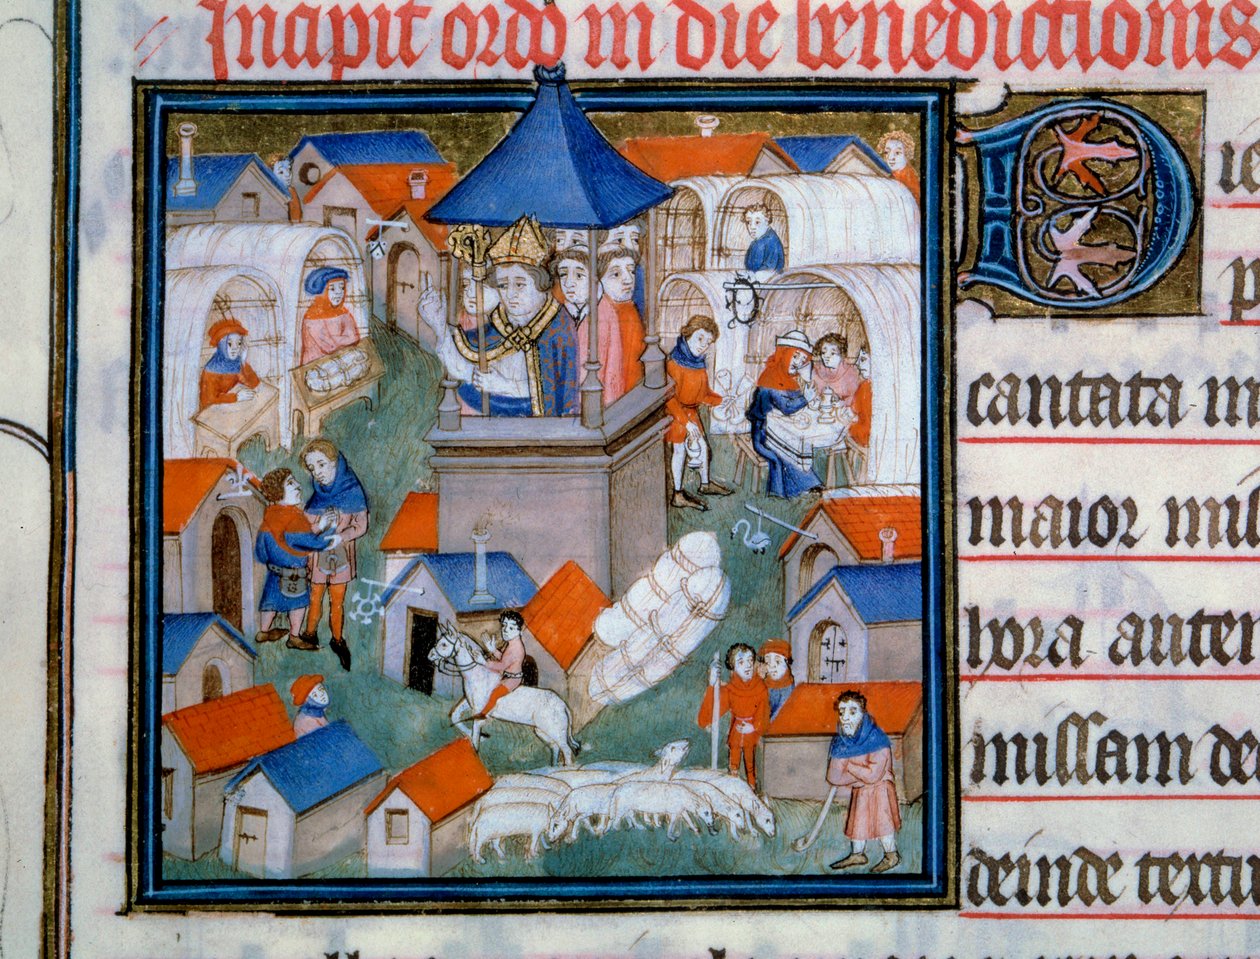 Incipit ordo in die benedictionis
D
p
cantata
maior
hora
missam de
deinde textu